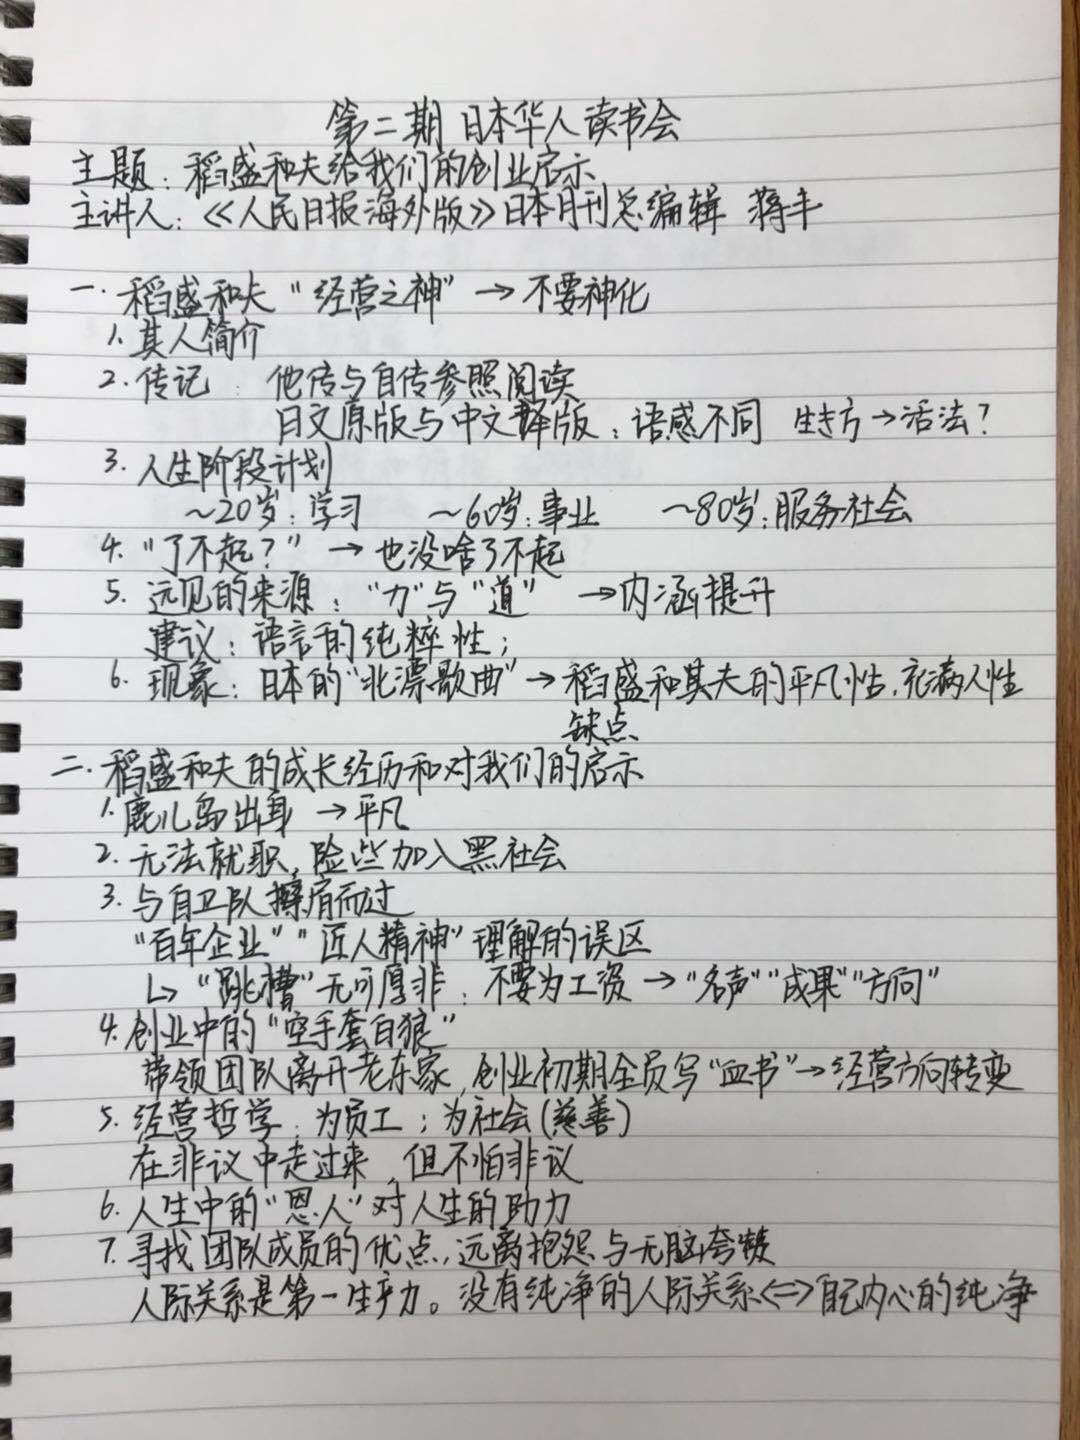 第二期 日本华人读书会
主题：稻盛和夫给我们的创业启示
主讲人：《人民日报海外版》日本月刊总编辑 蒋丰
一. 稻盛和夫 "经营之神" → 不要神化
1. 其人简介
2. 传记：他传与自传参照阅读
日文原版与中文译版：语感不同 生き方→活法？
3. 人生阶段计划
～20岁：学习 ～60岁：事业 ～80岁：服务社会
4. "了不起？" → 也没啥了不起
5. 远见的来源："力"与"道" →内涵提升
建议：语言的纯粹性；
6. 现象：日本的"北漂歌曲"→稻盛和其夫的平凡性，充满人性
缺点
二. 稻盛和夫的成长经历和对我们的启示
1. 鹿儿岛出身 → 平凡
2. 无法就职，险些加入黑社会
3. 与自卫队擦肩而过
"百年企业" "匠人精神" 理解的误区
↳ "跳槽"无可厚非：不要为工资 → "名声" "成果" "方向"
4. 创业中的"空手套白狼"
带领团队离开老东家，创业初期全员写"血书"→经营方向转变
5. 经营哲学：为员工；为社会(慈善)
在非议中走过来，但不怕非议
6. 人生中的"恩人"对人生的助力
7. 寻找团队成员的优点，远离抱怨与无脑夸赞
人际关系是第一生产力。没有纯净的人际关系<=>自己内心的纯净